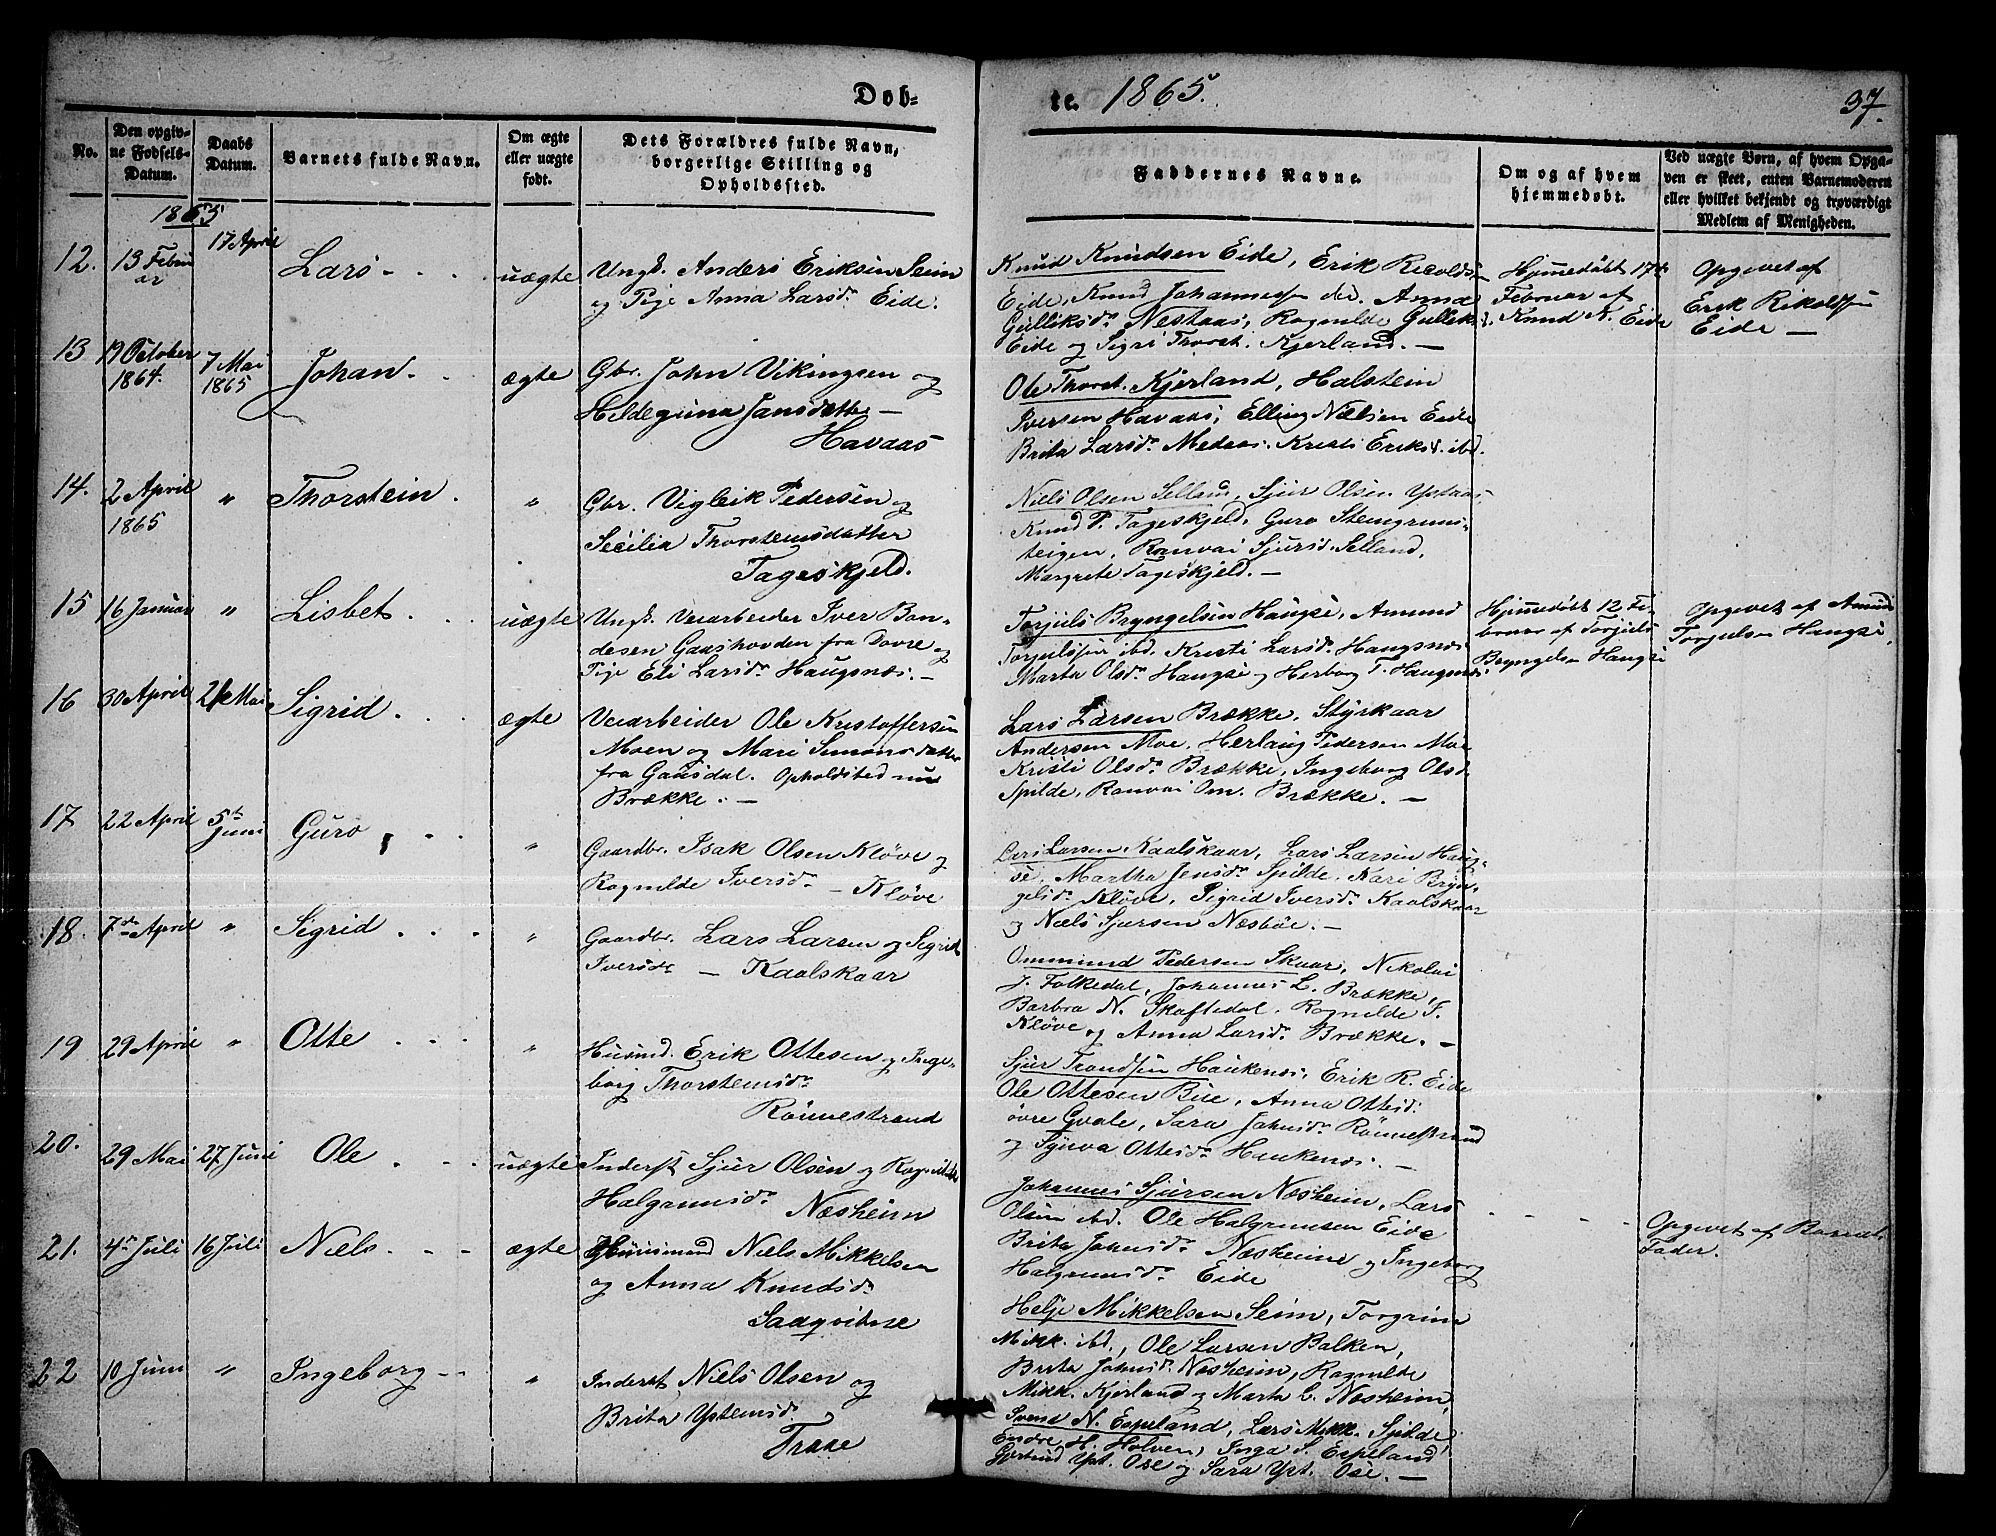 Døb-
te. 1865.
37.
No.
Den opgiv-
ne Fødsels-
Datum.
Daabs
Datum.
Barnets fulde Navn.
Om ægte
eller uægte
født.
Dets Forældres fulde Navn,
borgerlige Stilling og
Opholdssted.
Faddernes Navne.
Om og af hvem
hjemmedøbt.
Ved uægte Børn, af hvem Opga-
ven er skeet, enten Barnemoderen
eller hvilket bekjendt og troværdigt
Medlem af Menigheden.
1865
12.
13 Febru
ar
17 April
Lars
uægte
Ungk. Anders Eriksen Seim
og Pige Anna Larsd. Eide.
Knud Knudsen Eide, Erik Ricolds.
Eide, Knud Johannessen ibd. Anna
Gulliksd. Nestaas, Ragnilde Gulliks.
Eide og Sigri Thorst. Kjerland. —
Hjemmedøbt 17de
Februar af
Knud K. Eide
Opgevet af
Erik Rikoldsen
Eide —
13
19 October
1864.
7 Mai
1865
Johan
ægte
Gbr. John Vikingsen og
Hildeguna Jansdatter —
Havaas
Ole Thorst. Kjerland, Halstein
Iversen Havaas, Elling Nielsen Eide
Brita Larsd. Medaas. Kristi Eriksd. ibd.
14.
2 April
1865
"
Thorstein
"
Gbr. Vigleik Pedersen og
Secilia Thorsteinsdatter
Tageskjeld.
Niels Olsen Selland, Sjur Olsen Ystaas
Knud P. Tageskjeld. Guro Steingrums-
teigen, Ranvai Sjursd. Selland,
Margrete Tageskjeld. —
15
16 Januar
"
Lisbet
uægte
Ungk. Veiarbeider Iver Bon-
desen Gaashovden fra Dovre og
Pige Eli Larsd. Haugsnæs. —
Torjuls Bryngelsen Haugse, Amund
Torjulsen ibd. Kristi Larsd. Haugsnæs
Marta Olsd. Haugse og Herborg T. Haugsnæs
Hjemmedøbt 12 Fe-
bruar af Torjuls
Bryngelsen Haugse
Opgevet af Amund
Torjulsen Haugse.
16
30 April
21 Mai
Sigrid
ægte
Veiarbeider Ole Kristoffersen
Moen og Mari Simonsdatter
fra Gausdal. Opholdsted nu
Brække. —
Lars Larsen Brække. Styrkaar
Andersen Moe, Herlaug Pedersen Moe
Kristi Olsd. Brække, Ingeborg Olsd.
Spilde, Ranvai Om. Brække. —
17
22 April
5te
Juni
Guro
"
Gaardbr. Isak Olsen Kløve og
Ragnilde Iversd. — Kløve
Lars Larsen Kaalskaar, Lars Larsen Haug-
se. Martha Jensd. Spilde, Kari Bryn-
gelsd. Kløve, Sigrid Iversd. Kaalskaar
og Niels Sjursen Næsbøe. —
18.
7de April
"
Sigrid
"
Gaardbr. Lars Larsen og Sigrid
Iversd. — Kaalskaar
Ommund Pedersen Skaar, Nikolai
J. Folkedal, Johannes L. Brække,
Barbra N. Skaftedal, Ragnilde I.
Kløve og Anna Larsd. Brække. —
19
29 April
"
Otte
"
Husmd. Erik Ottesen og Inge-
borg Thorsteinsd.
Rønnestrand
Sjur Trondsen Haukenæs, Erik R. Eide
Ole Ottesen Bue, Anna Ottesd.
øvre Gvale, Sara Johnsd. Rønnestrand
og Synva Ottesd. Haukenæs. —
20.
29 Mai
27 Juni
Ole
uægte
Inderst Sjur Olsen og Ragnilde
Halgrumsd. Næsheim
Johannes Sjursen Næsheim, Lars
Olsen ibd. Ole Halgrumsen Eide
Brita Johnsd. Næsheim og Ingeborg
Halgrumsd. Eide
Opgevet af Barnets
Fader.
21.
4de Juli
16 Juli
Niels
ægte
Huusmand Niels Mikkelsen
og Anna Knudsd.
Saaqvitne
Helje Mikkelsen Seim, Torgrim
Mikk. ibd., Ole Larsen Balken,
Brita Johnsd. Næsheim, Ragnilde
Mikk. Kjerland og Marta L. Næsheim.
22
10 Juni
"
Ingeborg
"
Inderst Niels Olsen og
Brita Ystensd.
Traae
Svend N. Espeland, Lars Mikk. Spilde
Endre H. Holven, Inga S. Espeland
Gjertrud Yst. Ose og Sara Yst. Ose. —